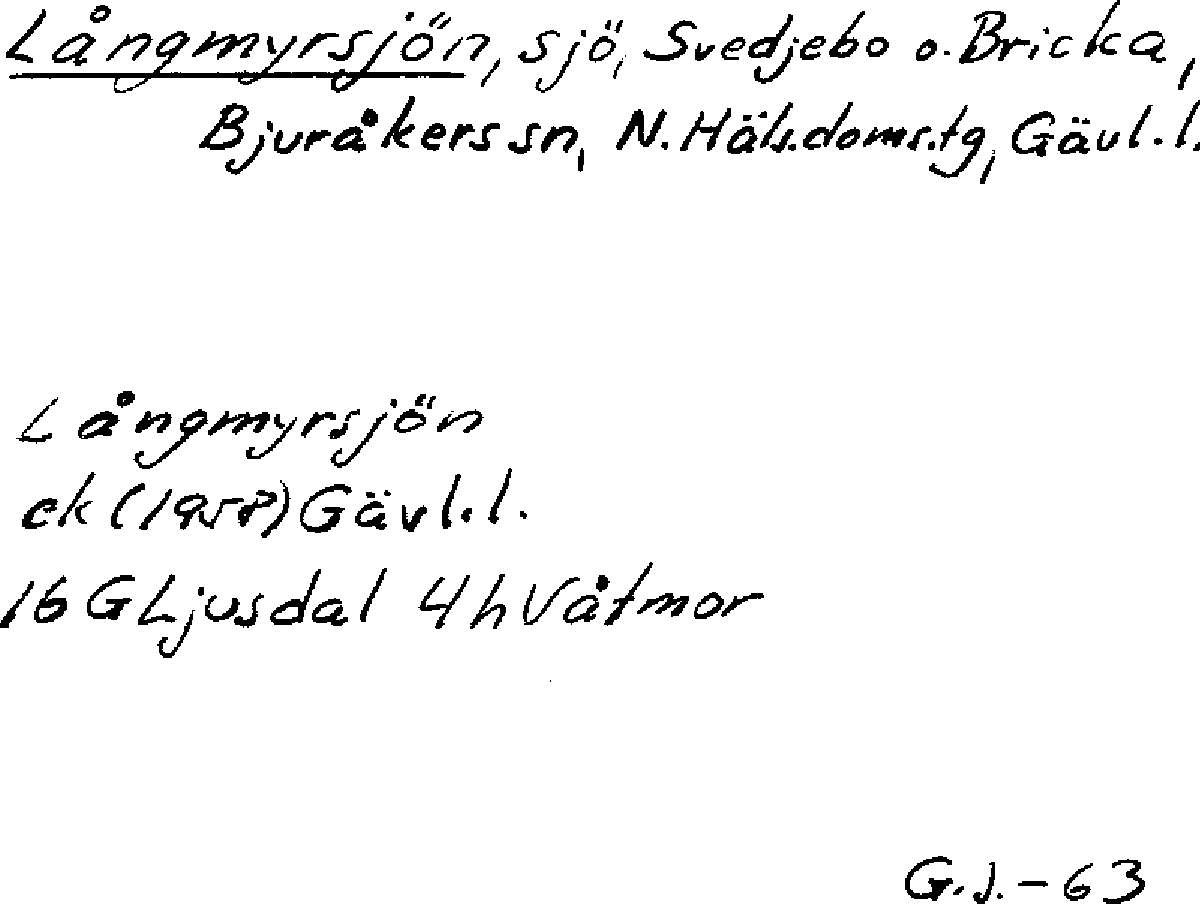 Långmyrsjön, sjö, Svedjebo o. Bricka,
Bjuråkers sn, N. Häls. doms. tg, Gävl. l.
Långmyrsjön
ek (1958) Gävl. l.
16 G Ljusdal 4 h Våtmor
G. J. - 63